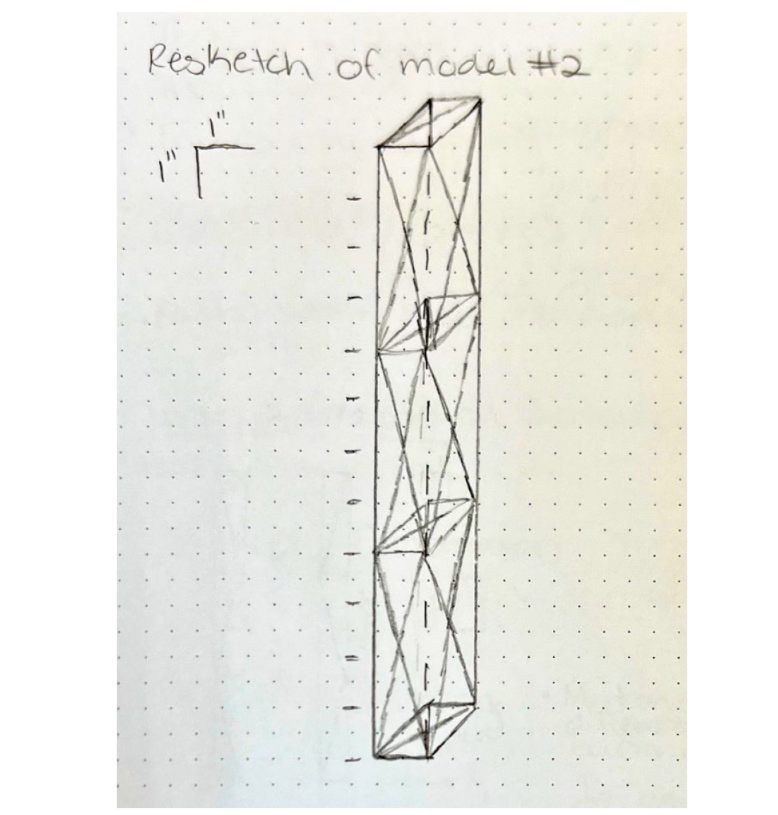 Resketch of model #2
1"
1"